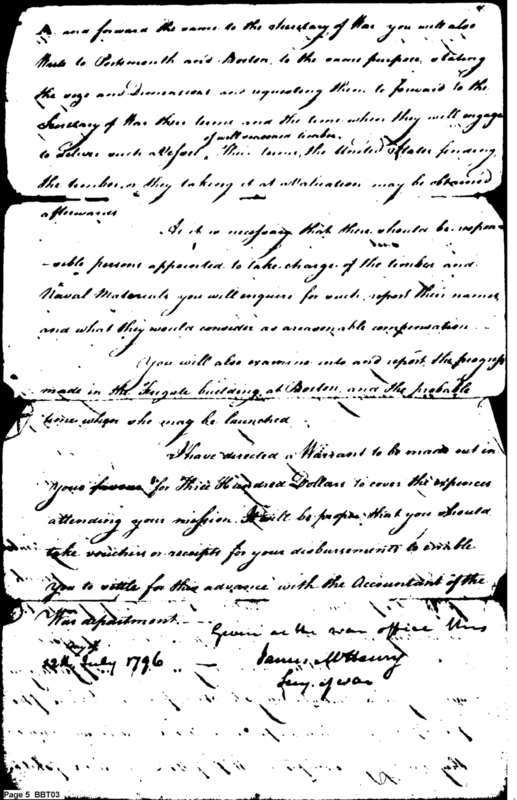 4
and forward the same to the Secretary of War you will also
Write to Portsmouth and Boston, to the same purpose, stating
the size and Dimensions and requesting them to forward to the
Secretary of War their terms and the time when they will engage
of well seasoned timber.
to deliver such a Vessel. Their terms, the United States finding
the timber, or they taking it at a Valuation may be obtained
afterwards
As it is necessary that there should be respon
-sible persons appointed to take charge of the timber and
Naval Materials you will enquire for such, report their names
and what they would consider as a reasonable compensation
You will also examine into and report, the progress
made in the Frigate building at Boston, and the probable
time when she may be launched
I have directed a Warrant to be made out in
your favour for Three Hundred Dollars to cover the expences
attending your mission. It will be proper that you should
take vouchers or receipts for your disbursements to enable
you to settle for this advance with the Accountant of the
War department.
Given at the war office this
12th day of July 1796
James McHenry
Secy. of war
Page 5 BBT03